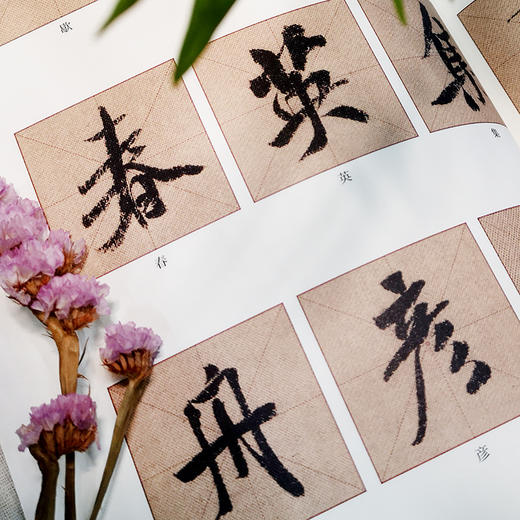 歇
春 英 集
春 英 集
舟 彦
彦